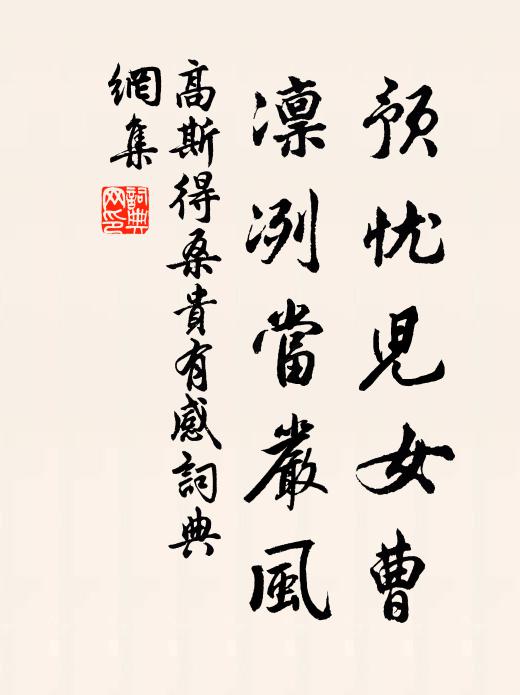 預忧兒女曹
凛冽當嚴風
高斯得桑貴有感詞典
網集
詞典
网印